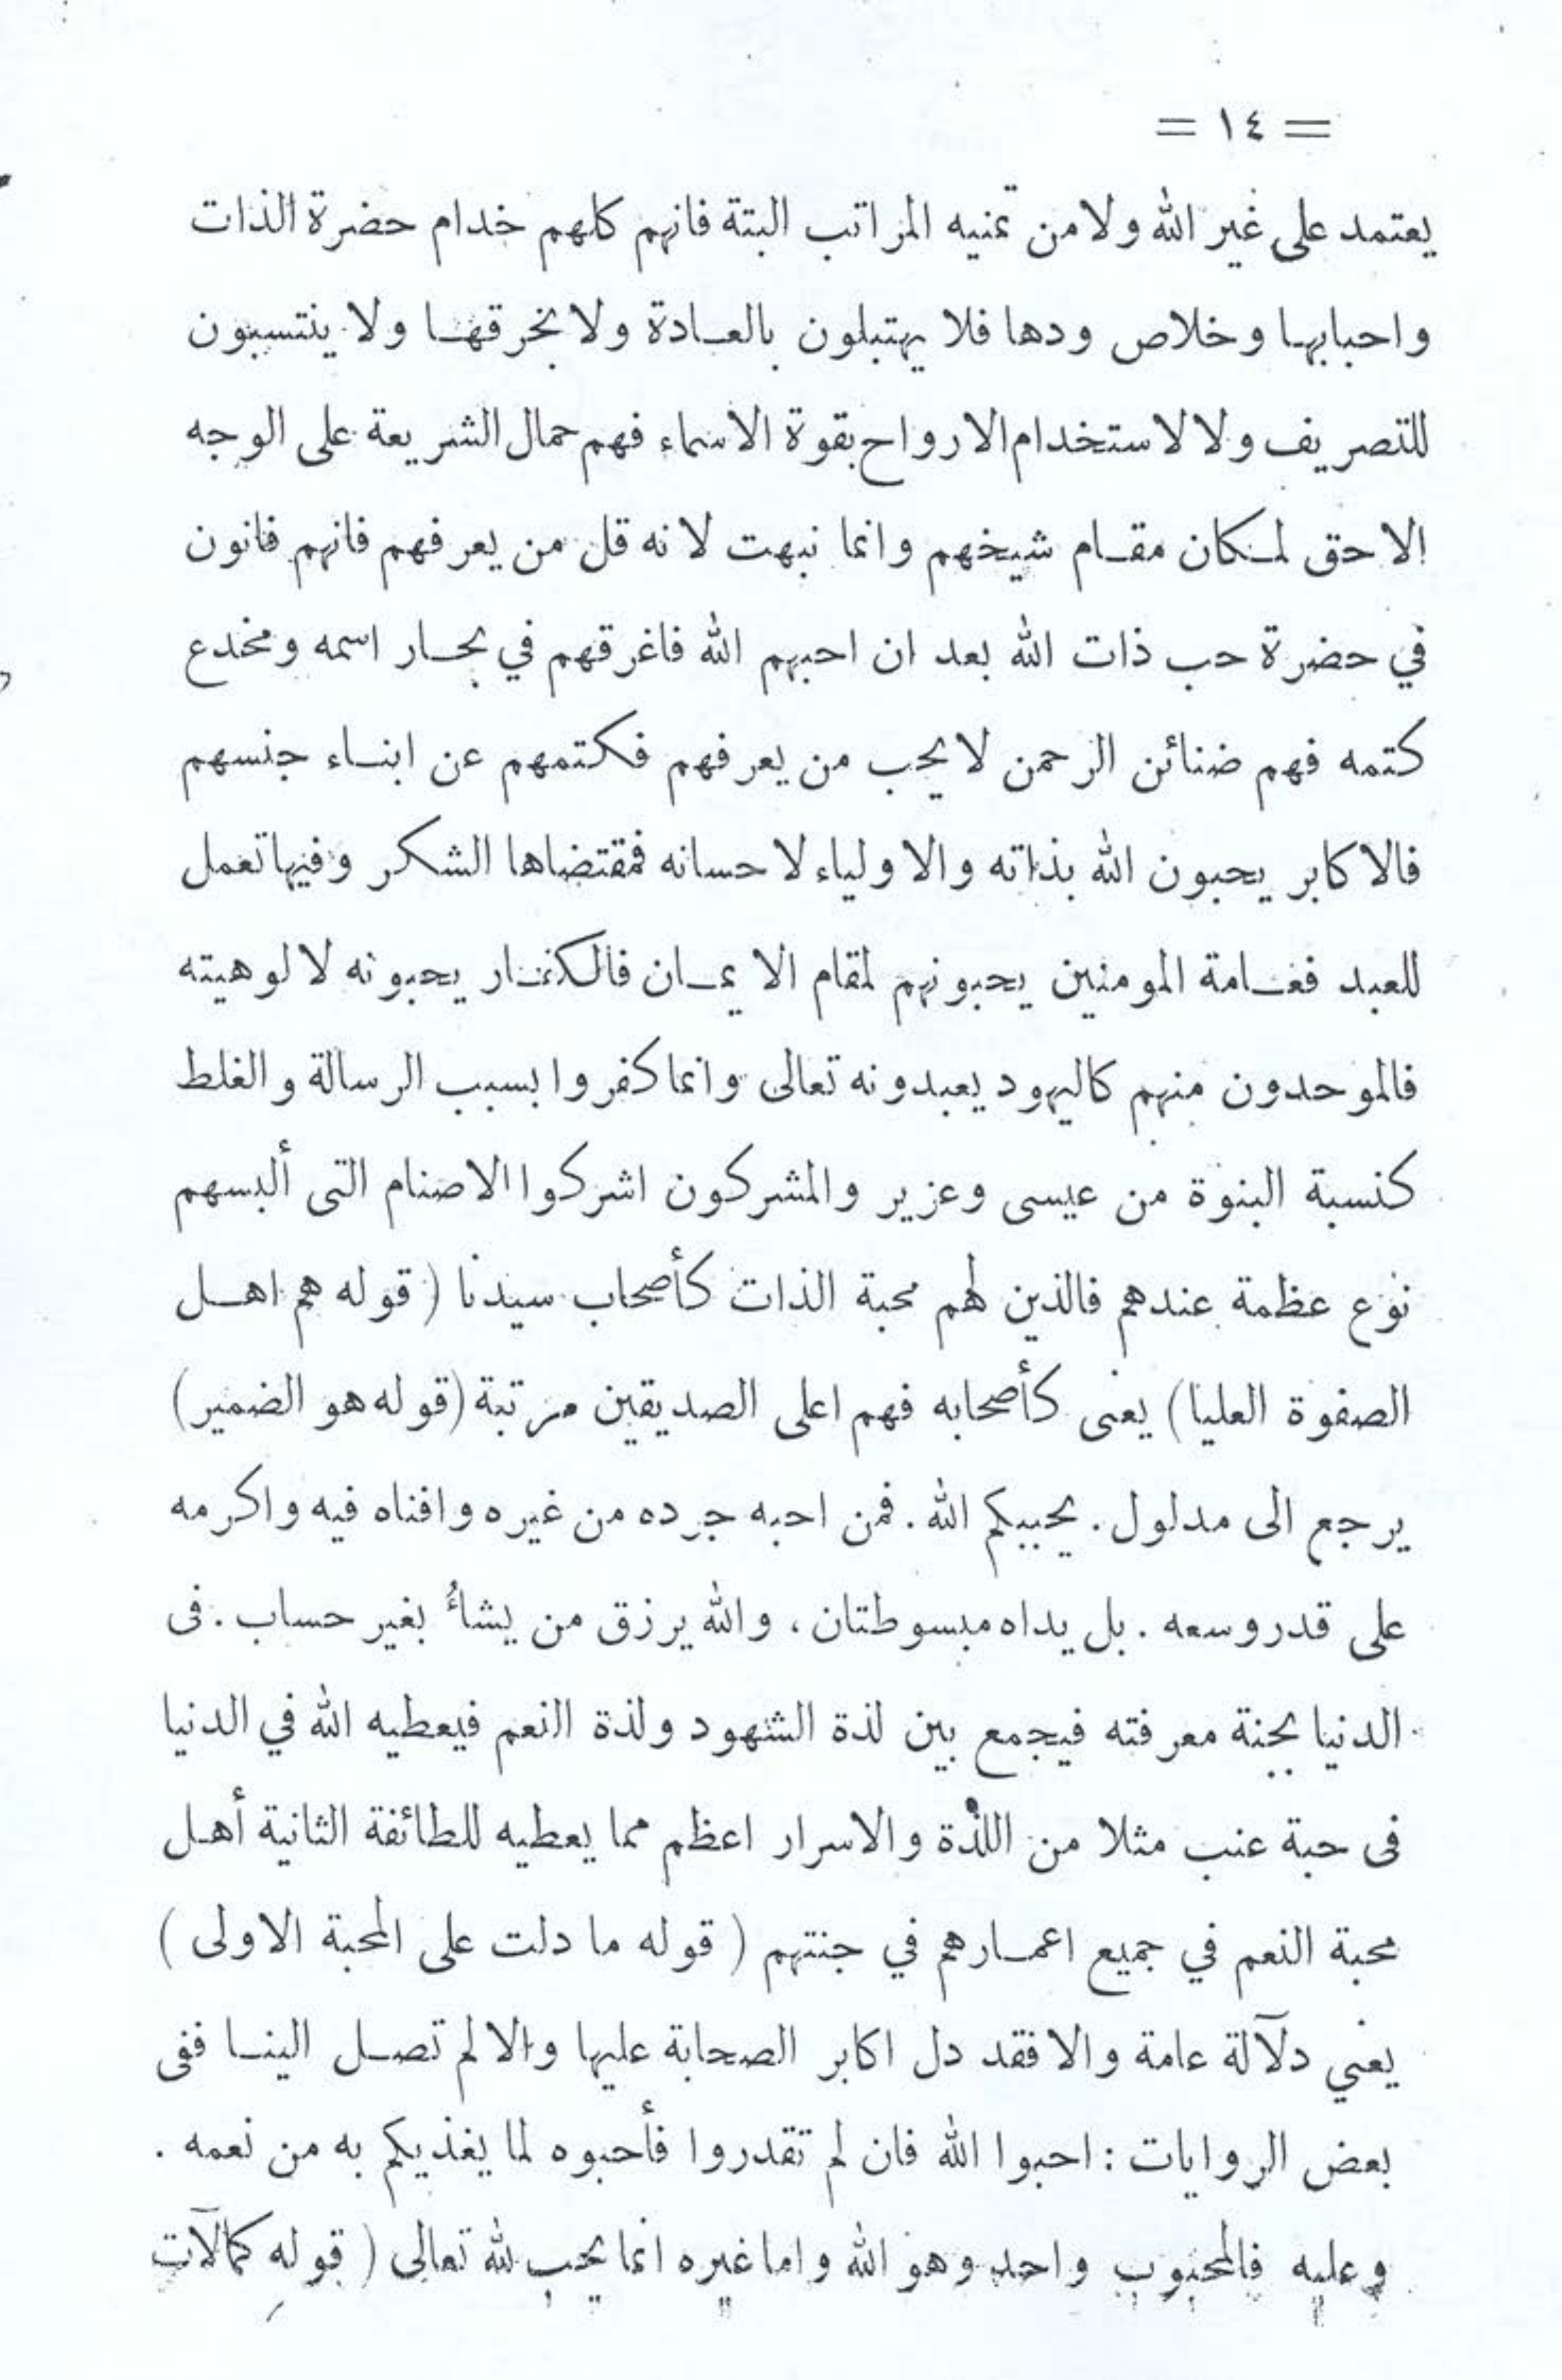 = ١٤ =
يعتمد على غير الله ولا من تمنيه المراتب البتة فانهم كلهم خدام حضرة الذات
واحبابها وخلاص ودها فلا يهتبلون بالعادة ولا بخرقها ولا ينتسبون
للتصريف ولا لاستخدام الارواح بقوة الاسماء فهم حمال الشريعة على الوجه
الاحق لمكان مقام شيخهم وانما نبهت لانه قل من يعرفهم فانهم فانون
في حضرة حب ذات الله بعد ان احبهم الله فاغرقهم في بحار اسمه ومخدع
كتمه فهم ضنائن الرحمن لا يحب من يعرفهم فكتمهم عن ابناء جنسهم
فالاكابر يحبون الله بذاته والاولياء لاحسانه فمقتضاها الشكر وفيها تعمل
للعبد فعامة المومنين يحبونهم لمقام الايمان فالكفار يحبونه لالوهيته
فالموحدون منهم كاليهود يعبدونه تعالى وانما كفروا بسبب الرسالة والغلط
كنسبة البنوة من عيسى وعزير والمشركون اشركوا الاصنام التى ألبسهم
نوع عظمة عندهم فالذين لهم محبة الذات كأصحاب سيدنا ( قوله هم اهل
الصفوة العليا) يعنى كأصحابه فهم اعلى الصديقين مرتبة (قوله هو الضمير)
يرجع الى مدلول. يحببكم الله. فمن احبه جرده من غيره وافناه فيه واكرمه
على قدر وسعه. بل يداه مبسوطتان، والله يرزق من يشاءُ بغير حساب. فى
الدنيا بجنة معرفته فيجمع بين لذة الشهود ولذة النعم فيعطيه الله في الدنيا
فى حبة عنب مثلا من اللذة والاسرار اعظم مما يعطيه للطائفة الثانية أهل
محبة النعم في جميع اعمارهم في جنتهم ( قوله ما دلت على المحبة الاولى )
يعني دلآلة عامة والا فقد دل اكابر الصحابة عليها والا لم تصل الينا ففى
بعض الروايات : احبوا الله فان لم تقدروا فأحبوه لما يغذيكم به من نعمه .
وعليه فالمحبوب واحد وهو الله واما غيره انما يحب لله تعالى ( قوله كمالآت